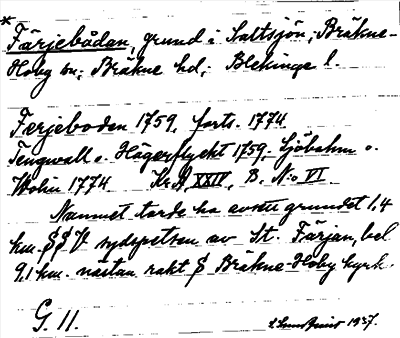 * Färjebådan, grund i Saltsjön; Bräkne-
Hoby sn; Bräkne hd; Blekinge l.
Ferjeboden 1759, forts. 1774
Tengwall o. Hägerflyckt 1759; Sjöbohm o.
Wolin 1774 Kr A XXIV, B. N:o VI
Namnet torde ha avsett grundet 1,4
km. SSV sydspetsen av St. Färjan, bel.
9,1 km. nästan rakt S Bräkne-Hoby kyrk.
G. 11.
1937.